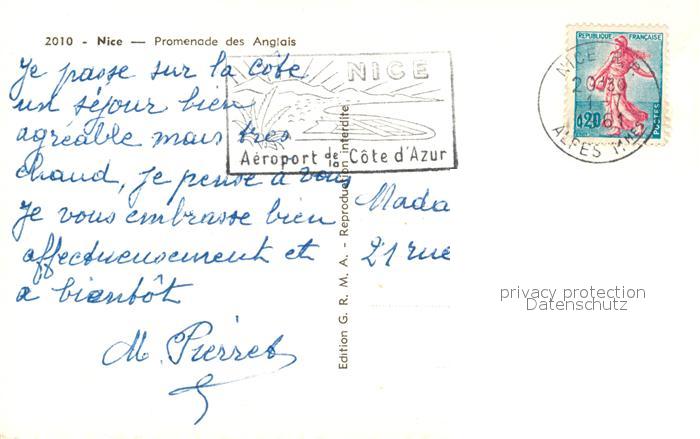 2010 - Nice — Promenade des Anglais
Je passe sur la Côte
un séjour bien
agréable mais très
chaud, je pense à vous
Je vous embrasse bien
affectueusement et
a bientôt
M. Pierret
NICE
Aéroport de la Côte d'Azur
Edition G. R. M. A. - Reproduction interdite
REPUBLIQUE FRANÇAISE
0,20
POSTES
NICE
20H30
ALPES MMES
Mada
21 rue
privacy protection
Datenschutz